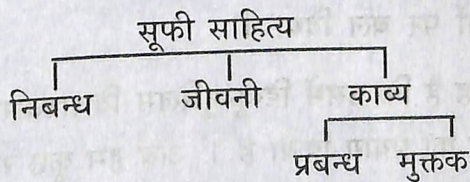 सूफी साहित्य
निबन्ध जीवनी काव्य
प्रबन्ध मुक्तक